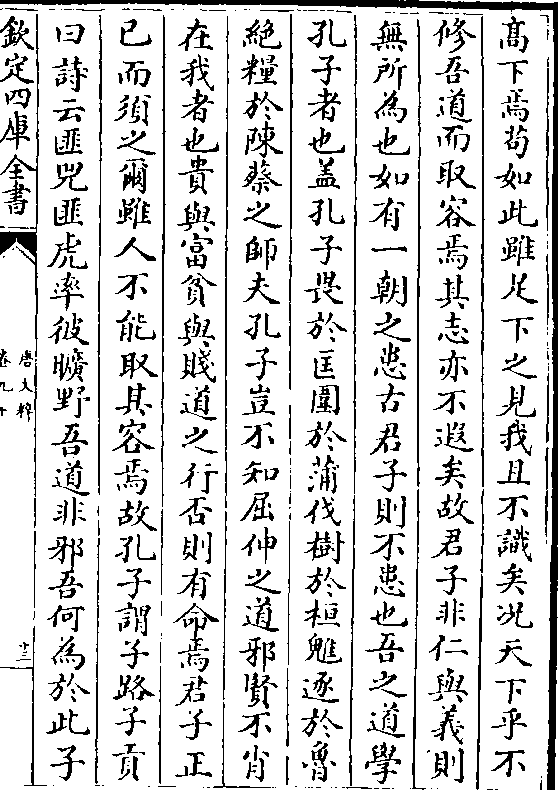 髙下焉苟如此雖足下之見我且不識矣况天下乎不
修吾道而取容焉其志亦不遐矣故君子非仁與義則
無所為也如有一朝之患古君子則不患也吾之道學
孔子者也盖孔子畏於匡圍於蒲伐樹於桓魋逐於魯
絶糧於陳蔡之師夫孔子豈不知屈伸之道邪賢不肖
在我者也貴與富貧與賤道之行否則有命焉君子正
已而須之爾雖人不能取其容焉故孔子謂子路子貢
曰詩云匪兕匪虎率彼曠野吾道非邪吾何為於此子
欽定四庫全書
唐文粹
卷九十
十二